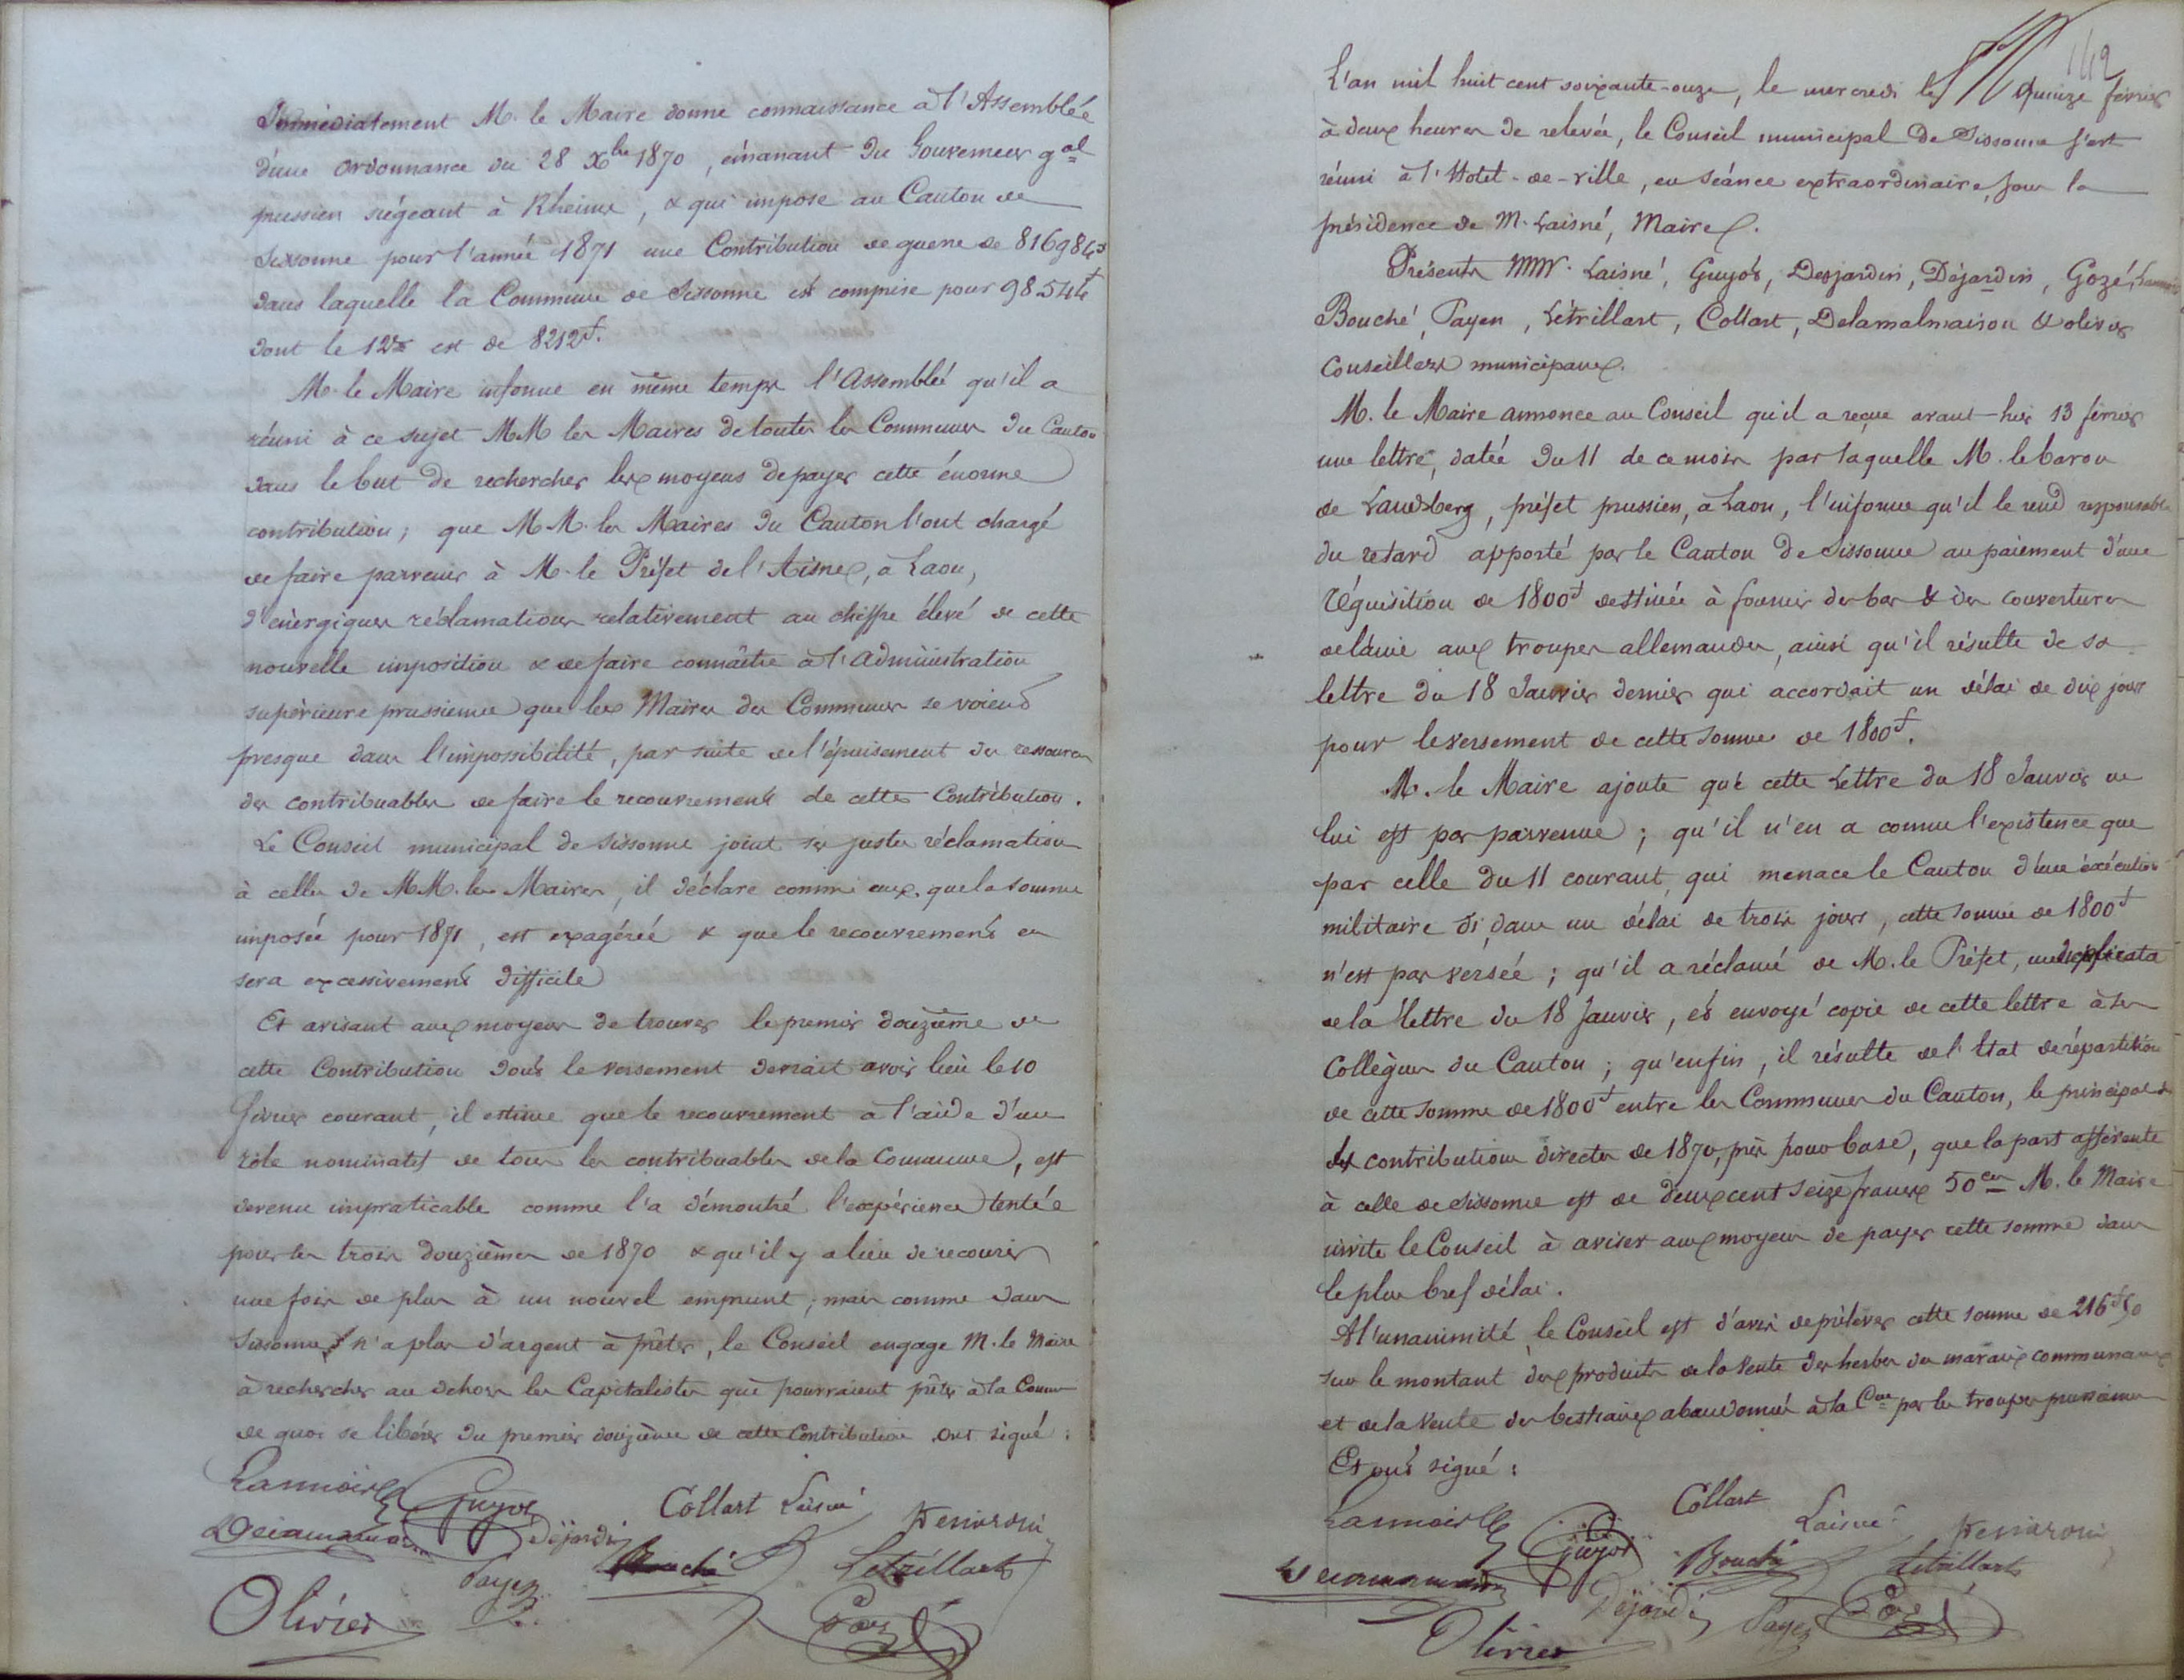 Immédiatement M. le Maire donne connaissance à l'Assemblée
d'une ordonnance du 28 Xbre 1870, émanant du Gouverneur gal
prussien siégeant à Rheims, & qui impose au Canton de
Sissonne pour l'année 1871 une Contribution de guerre de 816984f
dans laquelle la Commune de Sissonne est comprise pour 98544f
dont le 12e est de 8212f.
M. le Maire informe en même temps l'Assemblée qu'il a
réuni à ce sujet MM les Maires de toutes les Communes du Canton
dans le but de rechercher les moyens de payer cette énorme
contribution ; que MM. les Maires du Canton l'ont chargé
de faire parvenir à M. le Préfet de l'Aisne, à Laon,
d'énergiques réclamations relativement au chiffre élevé de cette
nouvelle imposition & de faire connaître à l'administration
supérieure prussienne que les Maires des Communes se voient
presque dans l'impossibilité, par suite de l'épuisement des ressources
des contribuables de faire le recouvrement de cette Contribution.
Le Conseil municipal de Sissonne joint ses justes réclamations
à celles de MM. les Maires, il déclare comme eux que la somme
imposée pour 1871, est exagérée & que le recouvrement en
sera excessivement difficile
Et avisant aux moyens de trouver le premier douzième de
cette Contribution dont le versement devrait avoir lieu le 10
février courant, il estime que le recouvrement à l'aide d'un
rôle nominatif de tous les contribuables de la Commune, est
devenu impraticable comme l'a démontré l'expérience tentée
pour les trois douzièmes de 1870 & qu'il y a lieu de recourir
une fois de plus à un nouvel emprunt ; mais comme dans
Sissonne n'a plus d'argent à prêter, le Conseil engage M. le Maire
à rechercher au dehors les Capitalistes qui pourraient prêter à la Comm
de quoi se libérer du premier douzième de cette Contribution ont signé :
Lannois Guyot Collart Laisné
Delamalmaison Déjardin Bouché Letrillart
Payen
Olivier Gozé
142
L'an mil huit cent soixante-onze, le mercredi quinze février
à deux heures de relevée, le Conseil municipal de Sissonne s'est
réuni à l'Hotel-de-ville, en séance extraordinaire, sous la
présidence de M. Laisné, Maire.
Présents MM. Laisné, Guyot, Desjardin, Déjardin, Gozé, Lannois
Bouché, Payen, Létrillart, Collart, Delamalmaison & olivier
Conseillers municipaux.
M. le Maire annonce au Conseil qu'il a reçue avant-hier 13 février
une lettre, datée du 11 de ce mois par laquelle M. le baron
de Landsberg, préfet prussien, à Laon, l'informe qu'il le rend responsable
du retard apporté par le Canton de Sissonne au paiement d'une
réquisition de 1800f destinée à fournir des bas & des couvertures
de laine aux troupes allemandes, ainsi qu'il résulte de sa
lettre du 18 Janvier dernier qui accordait un délai de dix jours
pour le versement de cette somme de 1800f.
M. le Maire ajoute que cette Lettre du 18 Janvier ne
lui est pas parvenue ; qu'il n'en a connu l'existence que
par celle du 11 courant qui menace le Canton d'une exécution
militaire si, dans un délai de trois jours, cette somme de 1800f
n'est pas versée ; qu'il a réclamé de M. le Préfet, un duplicata
de la lettre du 18 Janvier, et envoyé copie de cette lettre à ses
Collègues du Canton ; qu'enfin, il résulte de l'Etat de répartition
de cette somme de 1800f entre les Communes du Canton, le principal
des contributions directes de 1870, pris pour base, que la part afférente
à celle de Sissonne est de deux cent seize francs 50ces M. le Maire
invite le Conseil à aviser aux moyens de payer cette somme dans
le plus bref délai.
A l'unanimité, le Conseil est d'avis de prélever cette somme de 216f50
sur le montant des produits de la vente des herbes des marais communaux
et de la vente des bestiaux abandonnés à la Cne par les troupes prussiennes
Et ont signé :
Lannois Guyot Collart Laisné
Delamalmaison Bouché Letrillart
Olivier Déjardin Payen Gozé